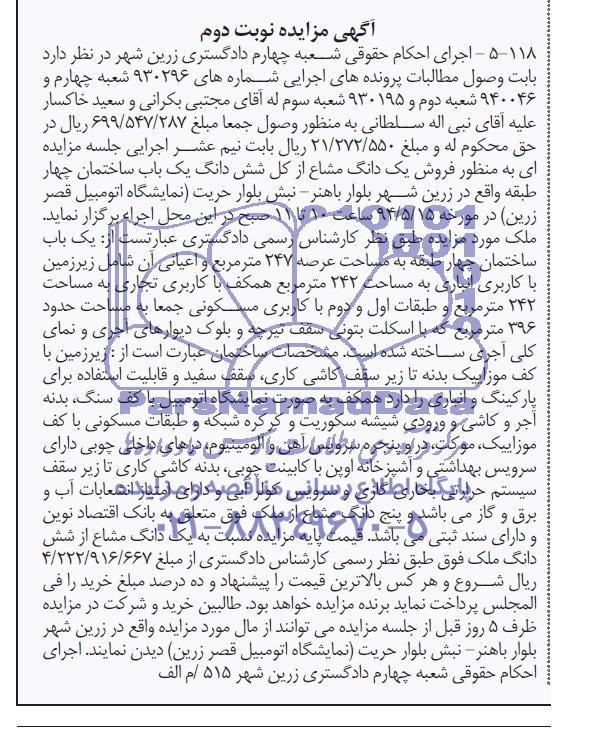 آگهی مزایده نوبت دوم
۵-۱۱۸ – اجرای احکام حقوقی شعبه چهارم دادگستری زرین شهر در نظر دارد
بابت وصول مطالبات پرونده های اجرایی شماره های ۹۳۰۲۹۶ شعبه چهارم و
۹۴۰۰۴۶ شعبه دوم و ۹۳۰۱۹۵ شعبه سوم له آقای مجتبی بکرانی و سعید خاکسار
علیه آقای نبی اله سلطانی به منظور وصول جمعا مبلغ ۶۹۹/۵۴۷/۲۸۷ ریال در
حق محکوم له و مبلغ ۲۱/۲۷۲/۵۵۰ ریال بابت نیم عشر اجرایی جلسه مزایده
ای به منظور فروش یک دانگ مشاع از کل شش دانگ یک باب ساختمان چهار
طبقه واقع در زرین شهر بلوار باهنر– نبش بلوار حریت (نمایشگاه اتومبیل قصر
زرین) در مورخه ۹۴/۵/۱۵ ساعت ۱۰ تا ۱۱ صبح در این محل اجراء برگزار نماید.
ملک مورد مزایده طبق نظر کارشناس رسمی دادگستری عبارتست از: یک باب
ساختمان چهار طبقه به مساحت عرصه ۲۴۷ مترمربع و اعیانی آن شامل زیرزمین
با کاربری انباری به مساحت ۲۴۲ مترمربع همکف با کاربری تجاری به مساحت
۲۴۲ مترمربع و طبقات اول و دوم با کاربری مسکونی جمعا به مساحت حدود
۳۹۶ مترمربع که با اسکلت بتونی سقف تیرچه و بلوک دیوارهای آجری و نمای
کلی آجری ساخته شده است. مشخصات ساختمان عبارت است از : زیرزمین با
کف موزاییک بدنه تا زیر سقف کاشی کاری، سقف سفید و قابلیت استفاده برای
پارکینگ و انباری را دارد همکف به صورت نمایشگاه اتومبیل با کف سنگ، بدنه
آجر و کاشی و ورودی شیشه سکوریت و کرکره شبکه و طبقات مسکونی با کف
موزاییک، موکت، در و پنجره سرویس آهن و آلومینیوم، درهای داخلی چوبی دارای
سرویس بهداشتی و آشپزخانه اوپن با کابینت چوبی، بدنه کاشی کاری تا زیر سقف
سیستم حرارتی بخاری گازی و سرویس کولر آبی و دارای امتیاز انشعابات آب و
برق و گاز می باشد. و پنج دانگ مشاع از ملک فوق متعلق به بانک اقتصاد نوین
و دارای سند ثبتی می باشد. قیمت پایه مزایده نسبت به یک دانگ مشاع از شش
دانگ ملک فوق طبق نظر رسمی کارشناس دادگستری از مبلغ ۴/۲۲۲/۹۱۶/۶۶۷
ریال شروع و هر کس بالاترین قیمت را پیشنهاد و ده درصد مبلغ خرید را فی
المجلس پرداخت نماید برنده مزایده خواهد بود. طالبین خرید و شرکت در مزایده
ظرف ۵ روز قبل از جلسه مزایده می توانند از مال مورد مزایده واقع در زرین شهر
بلوار باهنر– نبش بلوار حریت (نمایشگاه اتومبیل قصر زرین) دیدن نمایند. اجرای
احکام حقوقی شعبه چهارم دادگستری زرین شهر ۵۱۵ /م الف
ParsNamadData
پایگاه اطلاع رسانی مناقصه و مزایده
۰۲۱-۸۸۳۴۹۶۷۰-۵